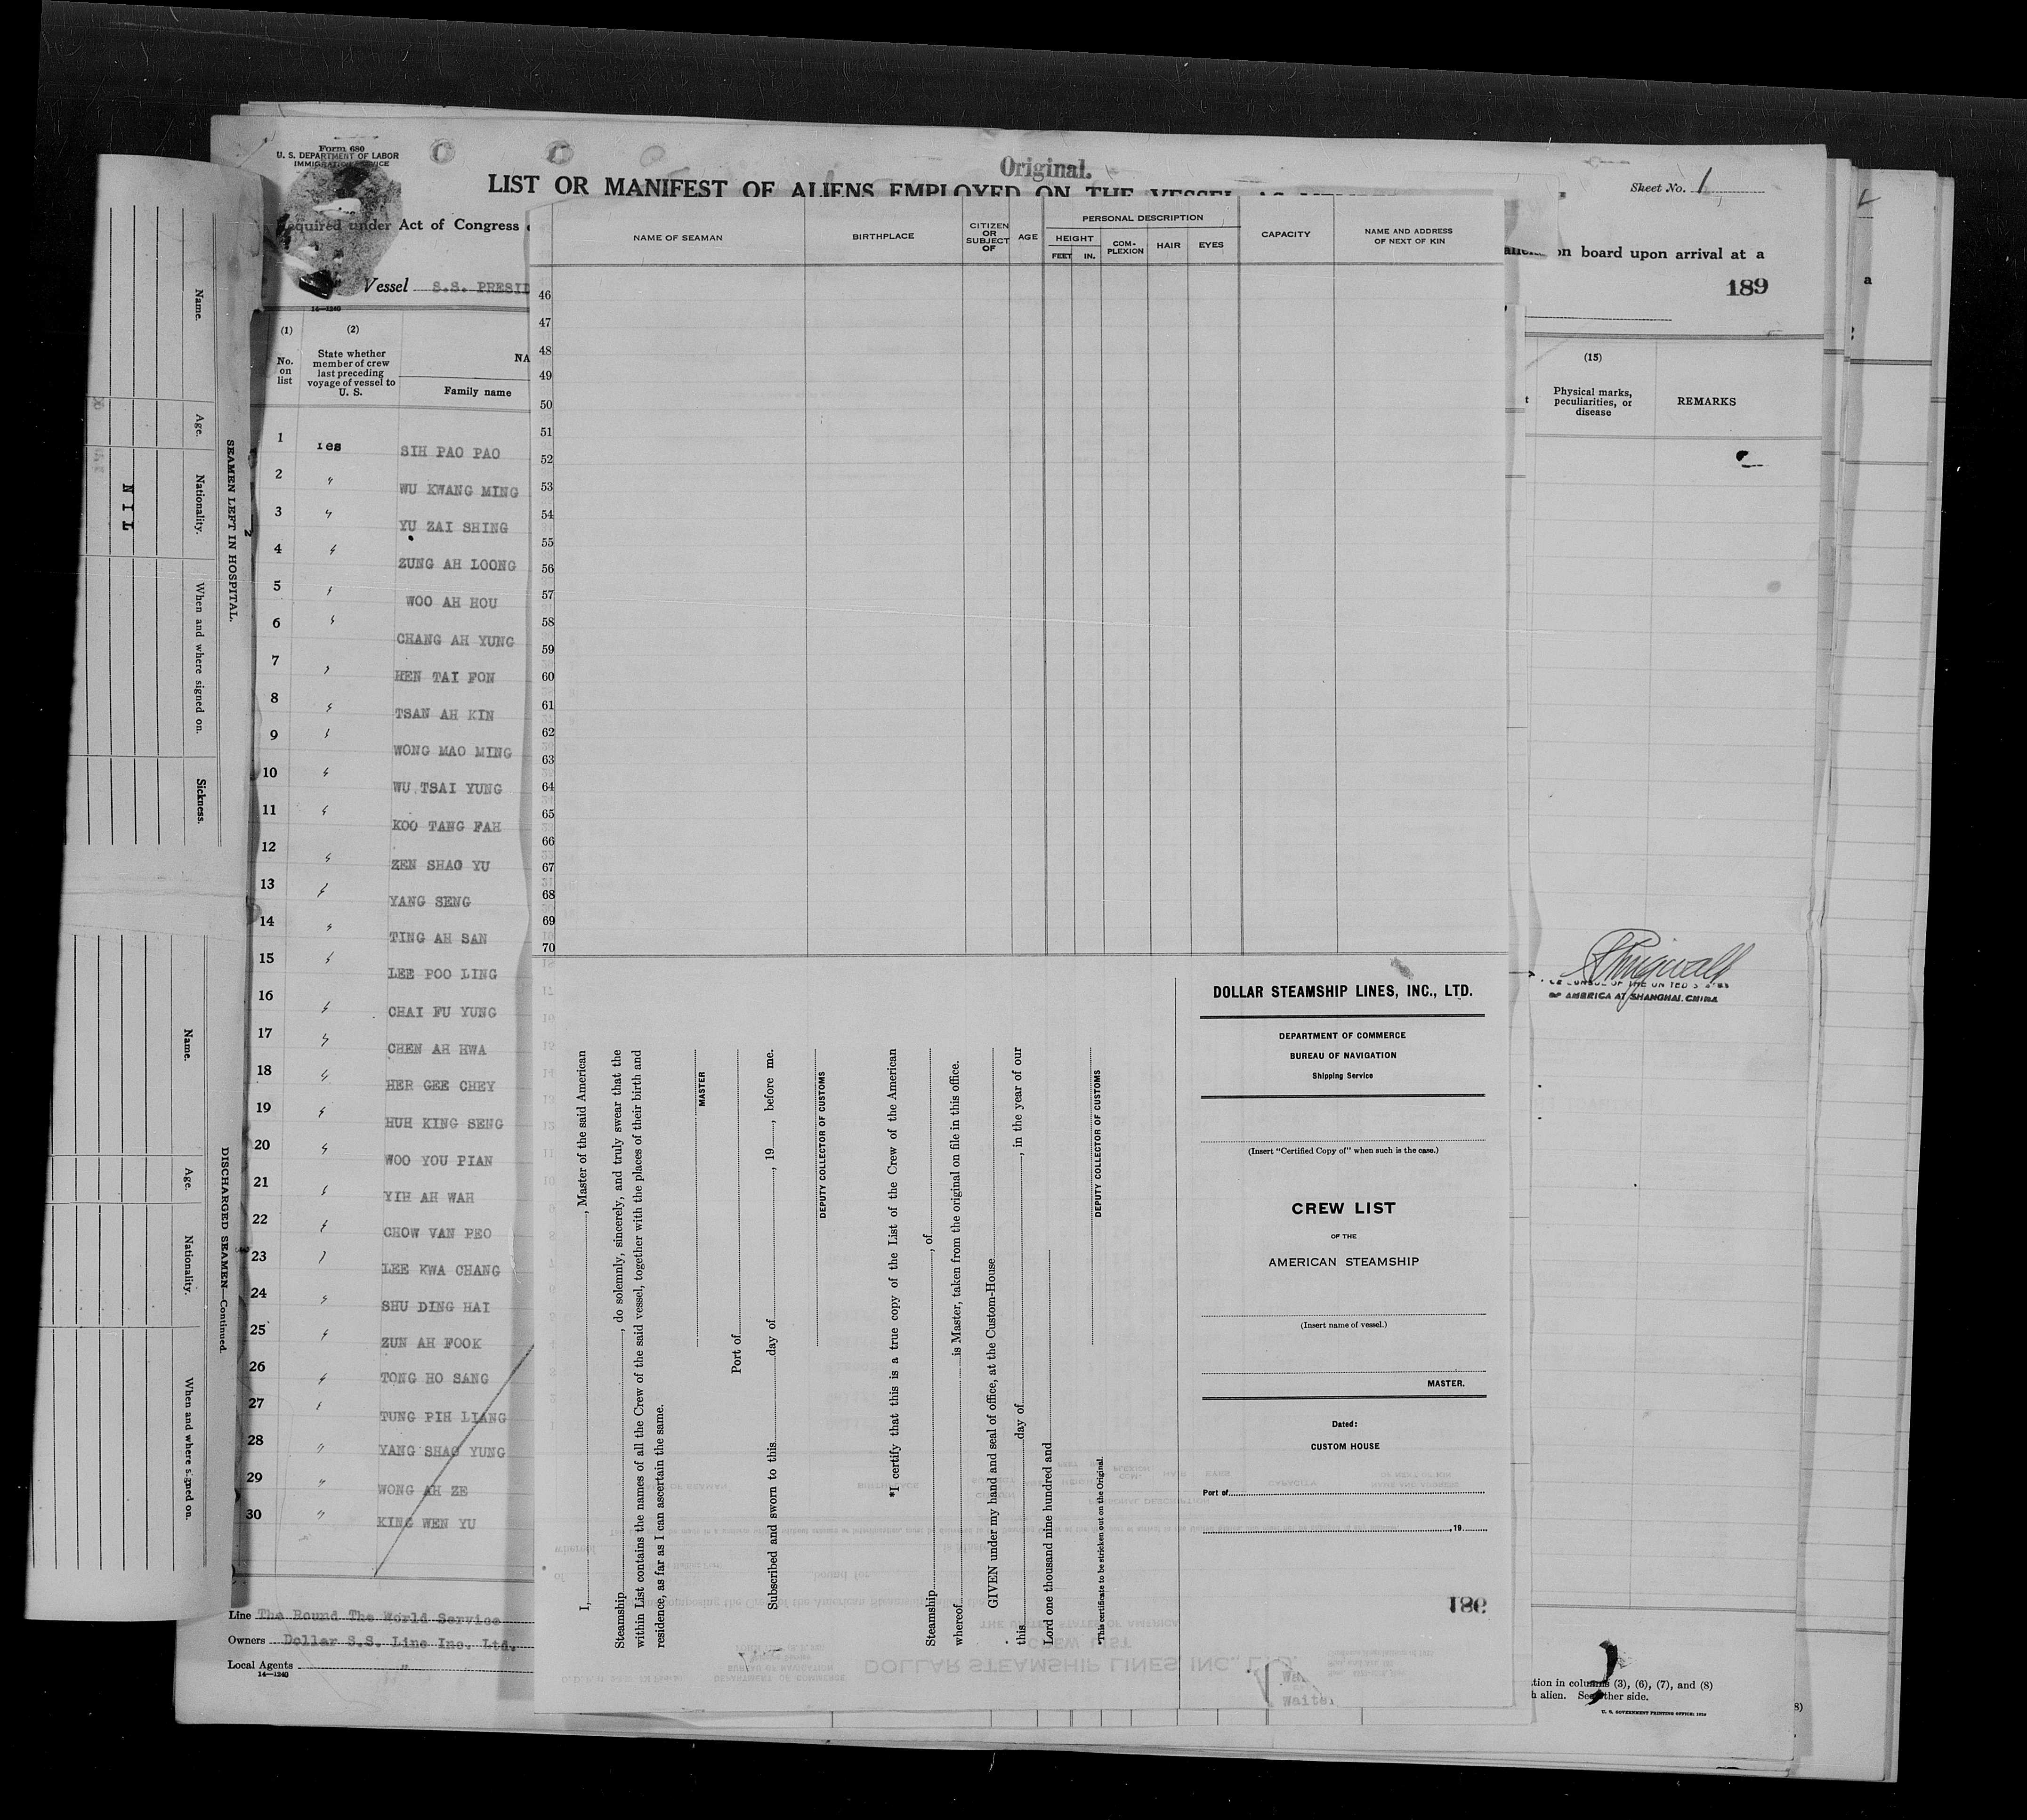 Form 680
U. S. DEPARTMENT OF LABOR
IMMIGRATION SERVICE
Original.
LIST OR MANIFEST OF ALIENS EMPLOYED ON THE VESSEL
Sheet No. 1
required under Act of Congress
on board upon arrival at a
189
Vessel S.S. PRESID
14—1240
(1)
No. on list
(2)
State whether member of crew last preceding voyage of vessel to U. S.
NA
Family name
(15)
Physical marks, peculiarities, or disease
REMARKS
1 Yes SIH PAO PAO
2 " WU KWANG MING
3 " YU ZAI SHING
4 " ZUNG AH LOONG
5 " WOO AH HOU
6 " CHANG AH YUNG
7 " HEN TAI FON
8 " TSAN AH KIN
9 " WONG MAO MING
10 " WU TSAI YUNG
11 " KOO TANG FAH
12 " ZEN SHAO YU
13 " YANG SENG
14 " TING AH SAN
15 " LEE POO LING
16 " CHAI FU YUNG
17 " CHEN AH HWA
18 " HER GEE CHEY
19 " HUH KING SENG
20 " WOO YOU PIAN
21 " YIH AH WAH
22 " CHOW VAN PEO
23 " LEE KWA CHANG
24 " SHU DING HAI
25 " ZUN AH FOOK
26 " TONG HO SANG
27 " TUNG PIH LIANG
28 " YANG SHAO YUNG
29 " WONG AH ZE
30 " KING WEN YU
Line The Round The World Service
Owners Dollar S.S. Line Inc. Ltd.
Local Agents "
14—1240
SEAMEN LEFT IN HOSPITAL.
Name.
Age.
Nationality.
When and where signed on.
Sickness.
N I L
DISCHARGED SEAMEN—Continued.
Name.
Age.
Nationality.
When and where signed on.
NAME OF SEAMAN
BIRTHPLACE
CITIZEN OR SUBJECT OF
AGE
PERSONAL DESCRIPTION
HEIGHT
FEET
IN.
COM-PLEXION
HAIR
EYES
CAPACITY
NAME AND ADDRESS OF NEXT OF KIN
46
47
48
49
50
51
52
53
54
55
56
57
58
59
60
61
62
63
64
65
66
67
68
69
70
I, , Master of the said American
Steamship , do solemnly, sincerely, and truly swear that the
within List contains the names of all the Crew of the said vessel, together with the places of their birth and
residence, as far as I can ascertain the same.
MASTER
Port of
Subscribed and sworn to this day of , 19 , before me.
DEPUTY COLLECTOR OF CUSTOMS
*I certify that this is a true copy of the List of the Crew of the American
Steamship , of
whereof is Master, taken from the original on file in this office.
GIVEN under my hand and seal of office, at the Custom-House
this day of , in the year of our
Lord one thousand nine hundred and
DEPUTY COLLECTOR OF CUSTOMS
*This certificate to be stricken out on the Original.
DOLLAR STEAMSHIP LINES, INC., LTD.
DEPARTMENT OF COMMERCE
BUREAU OF NAVIGATION
Shipping Service
(Insert "Certified Copy of" when such is the case.)
CREW LIST
OF THE
AMERICAN STEAMSHIP
(Insert name of vessel.)
MASTER.
Dated:
CUSTOM HOUSE
Port of
, 19
186
OF AMERICA AT SHANGHAI, CHINA
tion in columns (3), (6), (7), and (8)
h alien. See other side.
U. S. GOVERNMENT PRINTING OFFICE